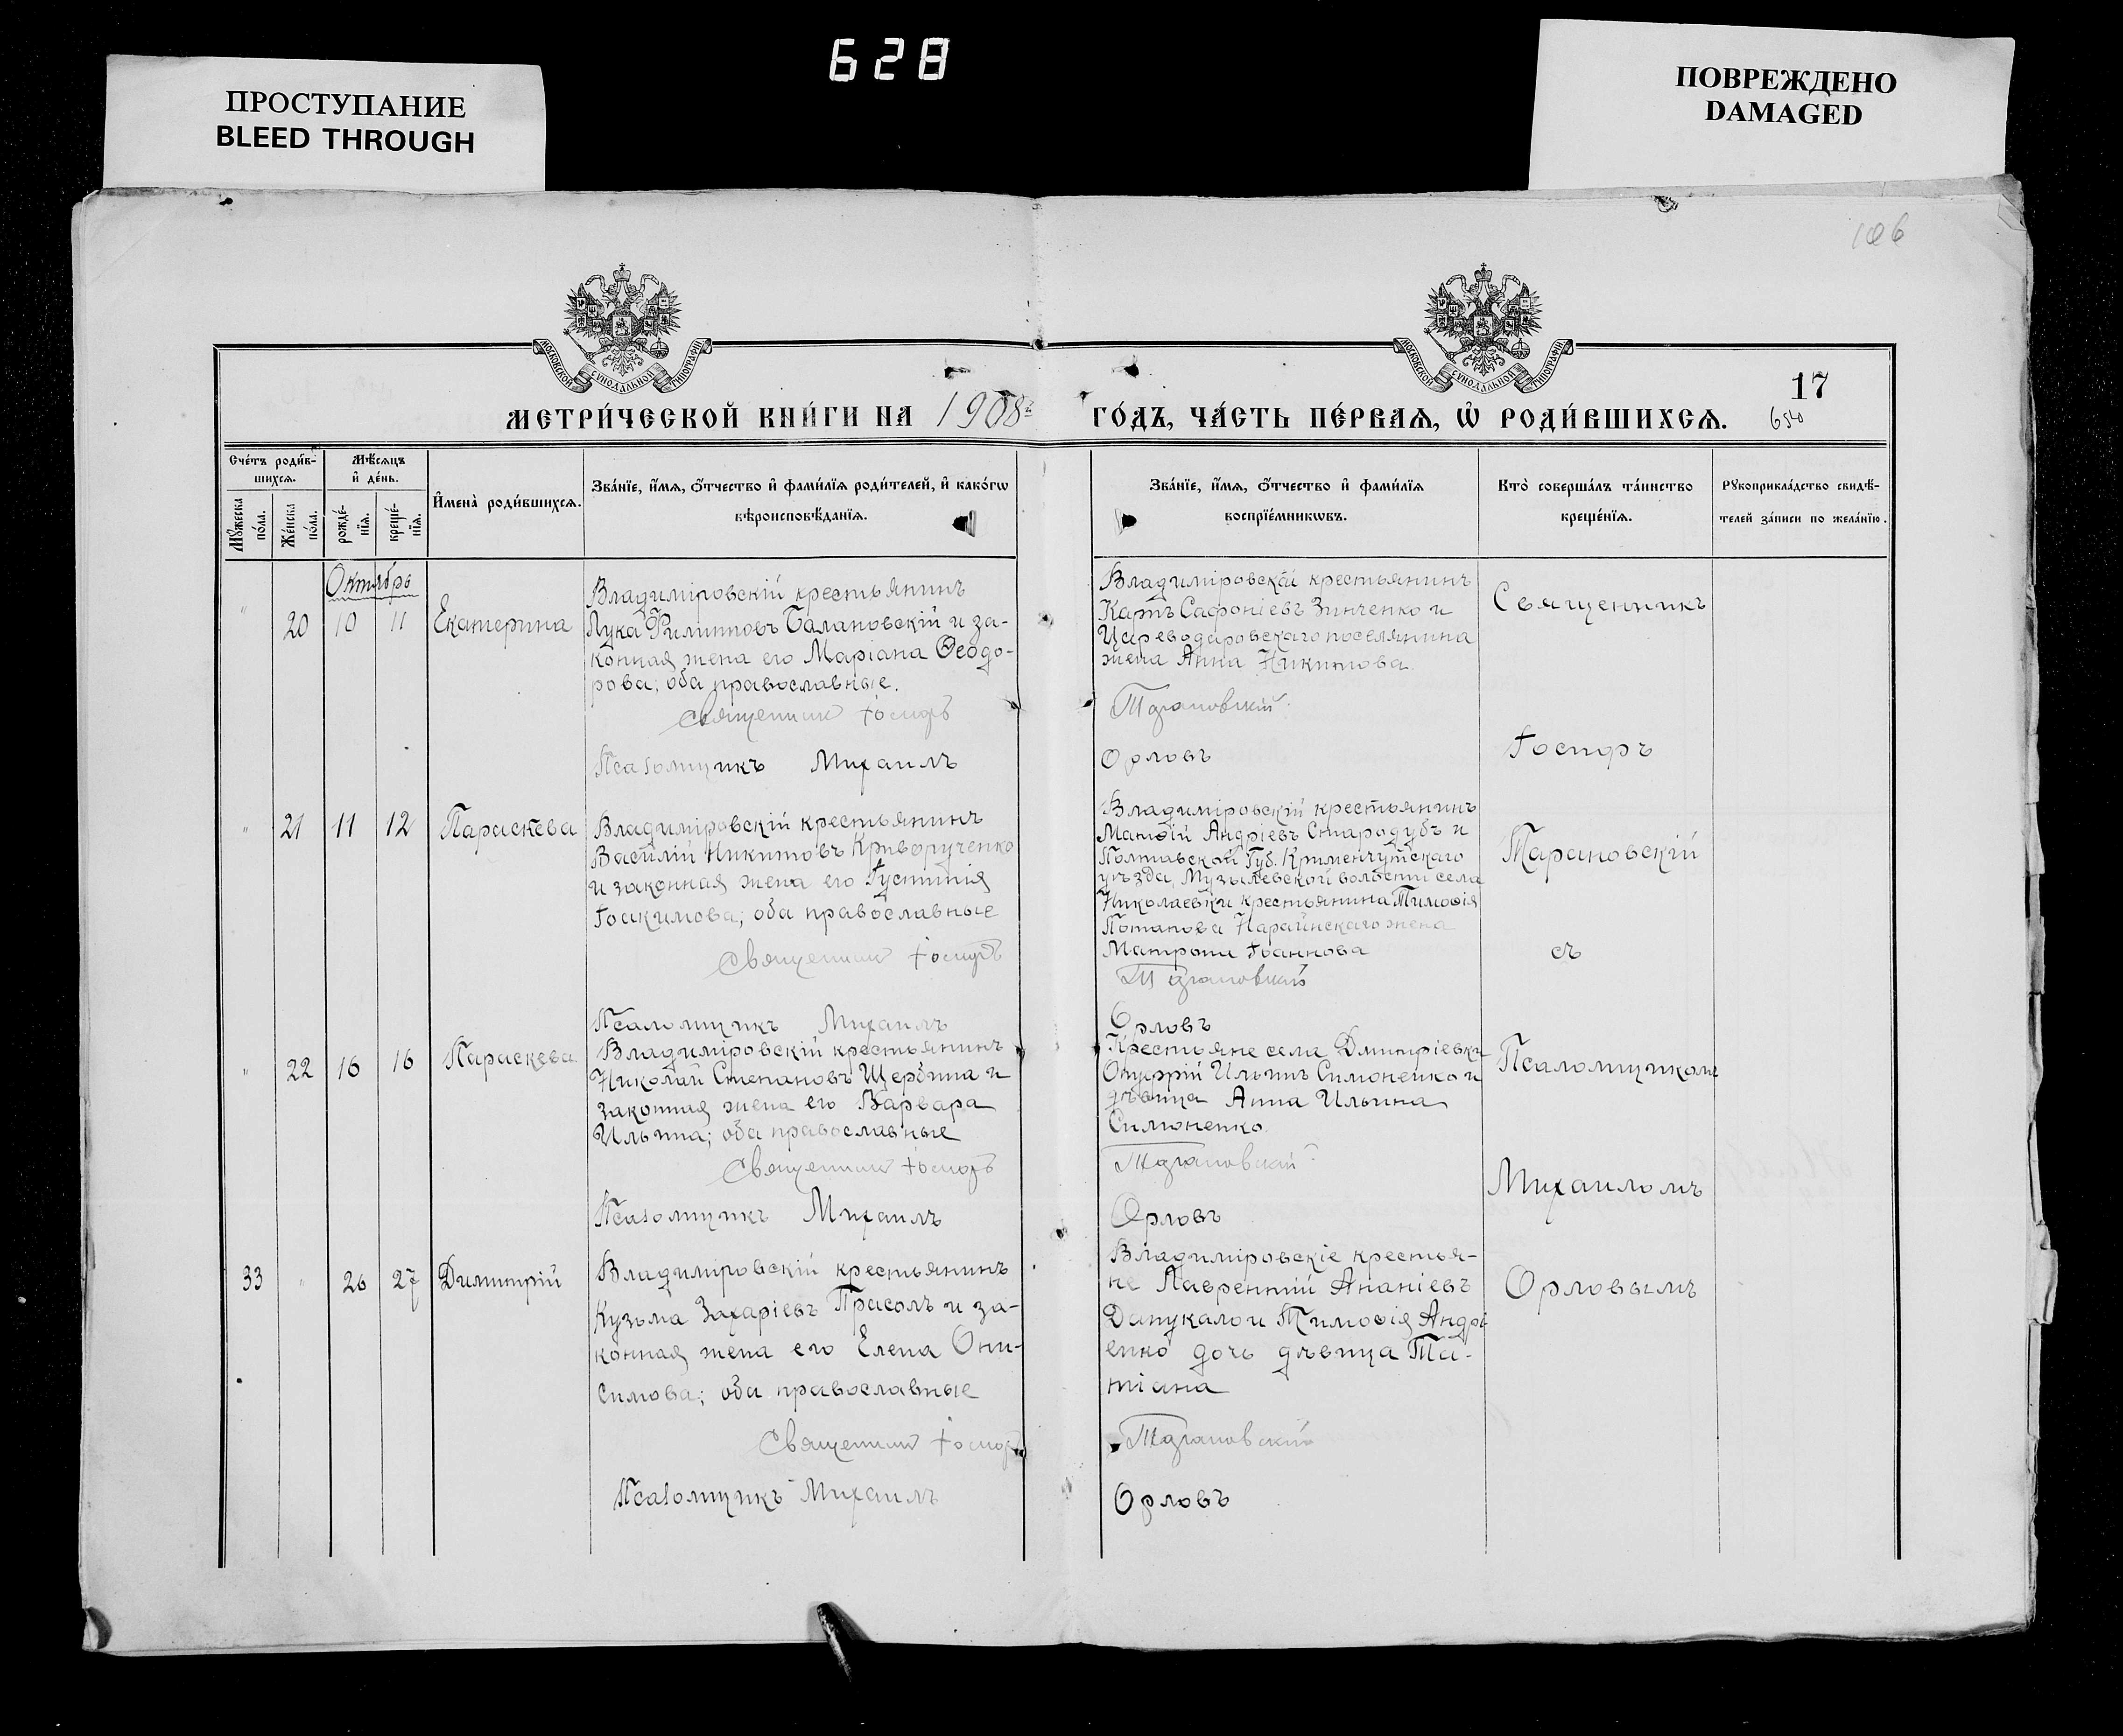 628
ПРОСТУПАНИЕ
BLEED THROUGH
ПОВРЕЖДЕНО
DAMAGED
106
МОСКОВСКОЙ СУНОДАЛЬНОЙ ТИПОГРАФІИ
МОСКОВСКОЙ СУНОДАЛЬНОЙ ТИПОГРАФІИ
17
МЕТРИ́ЧЕСКОЙ КНИ́ГИ НА 1908й ГО́ДЪ, ЧА́СТЬ ПЕ́РВАѦ, Ѡ҆ РОДИ́ВШИХСѦ.
650
Сче́тъ роди́в-
шихсѧ.
Мꙋ́жеска
по́ла.
Же́нска
по́ла.
Мѣ́сѧцъ
и҆ де́нь.
рожде́-
нїѧ.
креще́-
нїѧ.
И҆мена̀ роди́вшихсѧ.
Зва́нїе, и҆́мѧ, ѻ҆́тчество и҆ фами́лїѧ роди́телей, и҆ како́гѡ
вѣроисповѣ́данїѧ.
Зва́нїе, и҆́мѧ, ѻ҆́тчество и҆ фами́лїѧ
воспрїе́мникѡвъ.
Кто̀ соверша́лъ та́инство
креще́нїѧ.
Рꙋкоприкла́дство свидѣ́-
телей за́писи по жела́нїю.
Октябрь
" 20 10 11 Екатерина
Владиміровскій крестьянинъ
Лука Филипповъ Балановскій и за-
конная жена его Маріана Ѳеодо-
рова; оба православные.
Священникъ Іосифъ
Псаломщикъ Михаилъ
Владиміровскій крестьянинъ
Карпъ Сафоніевъ Зинченко и
Цареводаровскаго поселянина
жена Анна Никитова
Тарановскій
Орловъ
Священникъ
Іосифъ
" 21 11 12 Параскева
Владиміровскій крестьянинъ
Василій Никитовъ Криворученко
и законная жена его Іустинія
Іоакимова; оба православные
Священникъ Іосифъ
Псаломщикъ Михаилъ
Владиміровскій крестьянинъ
Матѳій Андріевъ Стародубъ и
Полтавской Губ. Кременчугскаго
уѣзда, волости села
Николаевки крестьянина Тимоѳія
Потапова жена
Матрона Іоаннова
Тарановскій
Орловъ
Тарановскій
съ
" 22 16 16 Параскева
Владиміровскій крестьянинъ
Николай Степановъ Щербина и
законная жена его Варвара
Ильина; оба православные
Священникъ Іосифъ
Псаломщикъ Михаилъ
Крестьяне села Дмитріевки
Онуфрій Ильинъ Симоненко и
дѣвица Анна Ильина
Симоненко
Тарановскій
Орловъ
Псаломщикомъ
Михаиломъ
33 " 26 27 Димитрій
Владиміровскій крестьянинъ
Кузьма Захаріевъ Прасолъ и за-
конная жена его Елена Они-
симова; оба православные
Священникъ Іосифъ
Псаломщикъ Михаилъ
Владиміровскіе крестья-
не Лаврентій Ананіевъ
и Тимоѳія Андрі
енко дочь дѣвица Та-
тіана
Тарановскій
Орловъ
Орловымъ